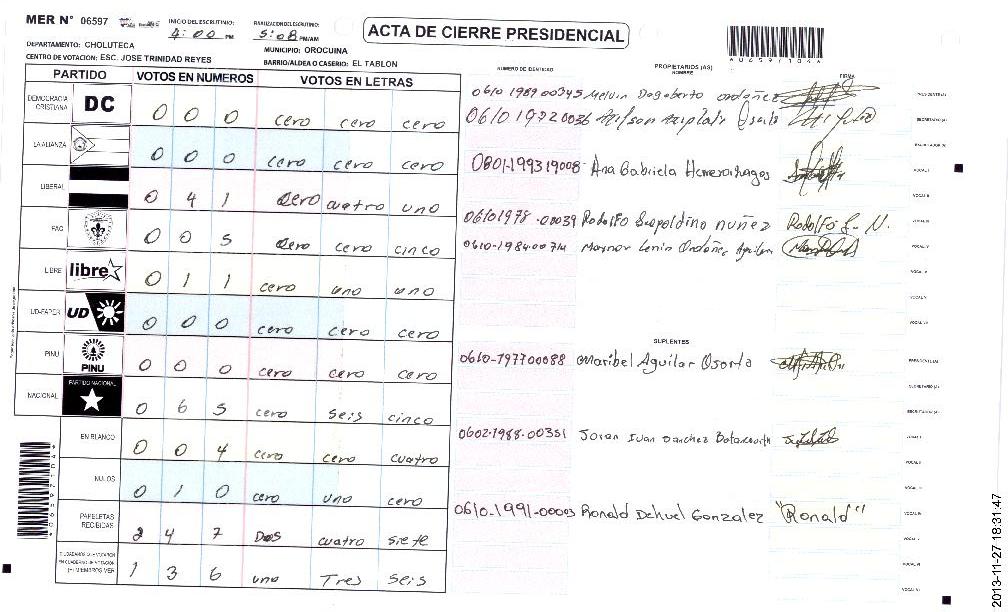 MER N° 06597
INICIO DEL ESCRUTINIO:
4:00 PM
FINALIZACION DEL ESCRUTINIO:
5:08 PM/AM
ACTA DE CIERRE PRESIDENCIAL
DEPARTAMENTO: CHOLUTECA
MUNICIPIO: OROCUINA
CENTRO DE VOTACION: ESC. JOSE TRINIDAD REYES
BARRIO/ALDEA O CASERIO: EL TABLON
PARTIDO VOTOS EN NUMEROS VOTOS EN LETRAS
NUMERO DE IDENTIDAD PROPIETARIOS (AS) NOMBRE FIRMA
DEMOCRACIA CRISTIANA DC 0 0 0 cero cero cero
LA ALIANZA 0 0 0 cero cero cero
LIBERAL 0 4 1 cero cuatro uno
PAC 0 0 5 cero cero cinco
LIBRE libre 0 1 1 cero uno uno
UD-FAPER UD 0 0 0 cero cero cero
PINU PINU 0 0 0 cero cero cero
NACIONAL PARTIDO NACIONAL 0 6 5 cero seis cinco
EN BLANCO 0 0 4 cero cero cuatro
NULOS 0 1 0 cero uno cero
PAPELETAS RECIBIDAS 2 4 7 Dos cuatro siete
1 3 6 uno Tres seis
0610 1989 00345 Melvin Dagoberto Ordoñez
0610 1972 0036
0801-1993 19008 Ana Gabriela
06101978-00039 Rodolfo Leopoldino nuñez Rodolfo L. N.
0610-1984-00714 Maynor Lenin Ordoñez Aguilera
SUPLENTES
0610-197700088 Maribel Aguilar Osorto
0602-1988-00351 Ivan Sanchez
0610-1991-00003 Ronald Gonzalez "Ronald"
2013-11-27 18:31:47